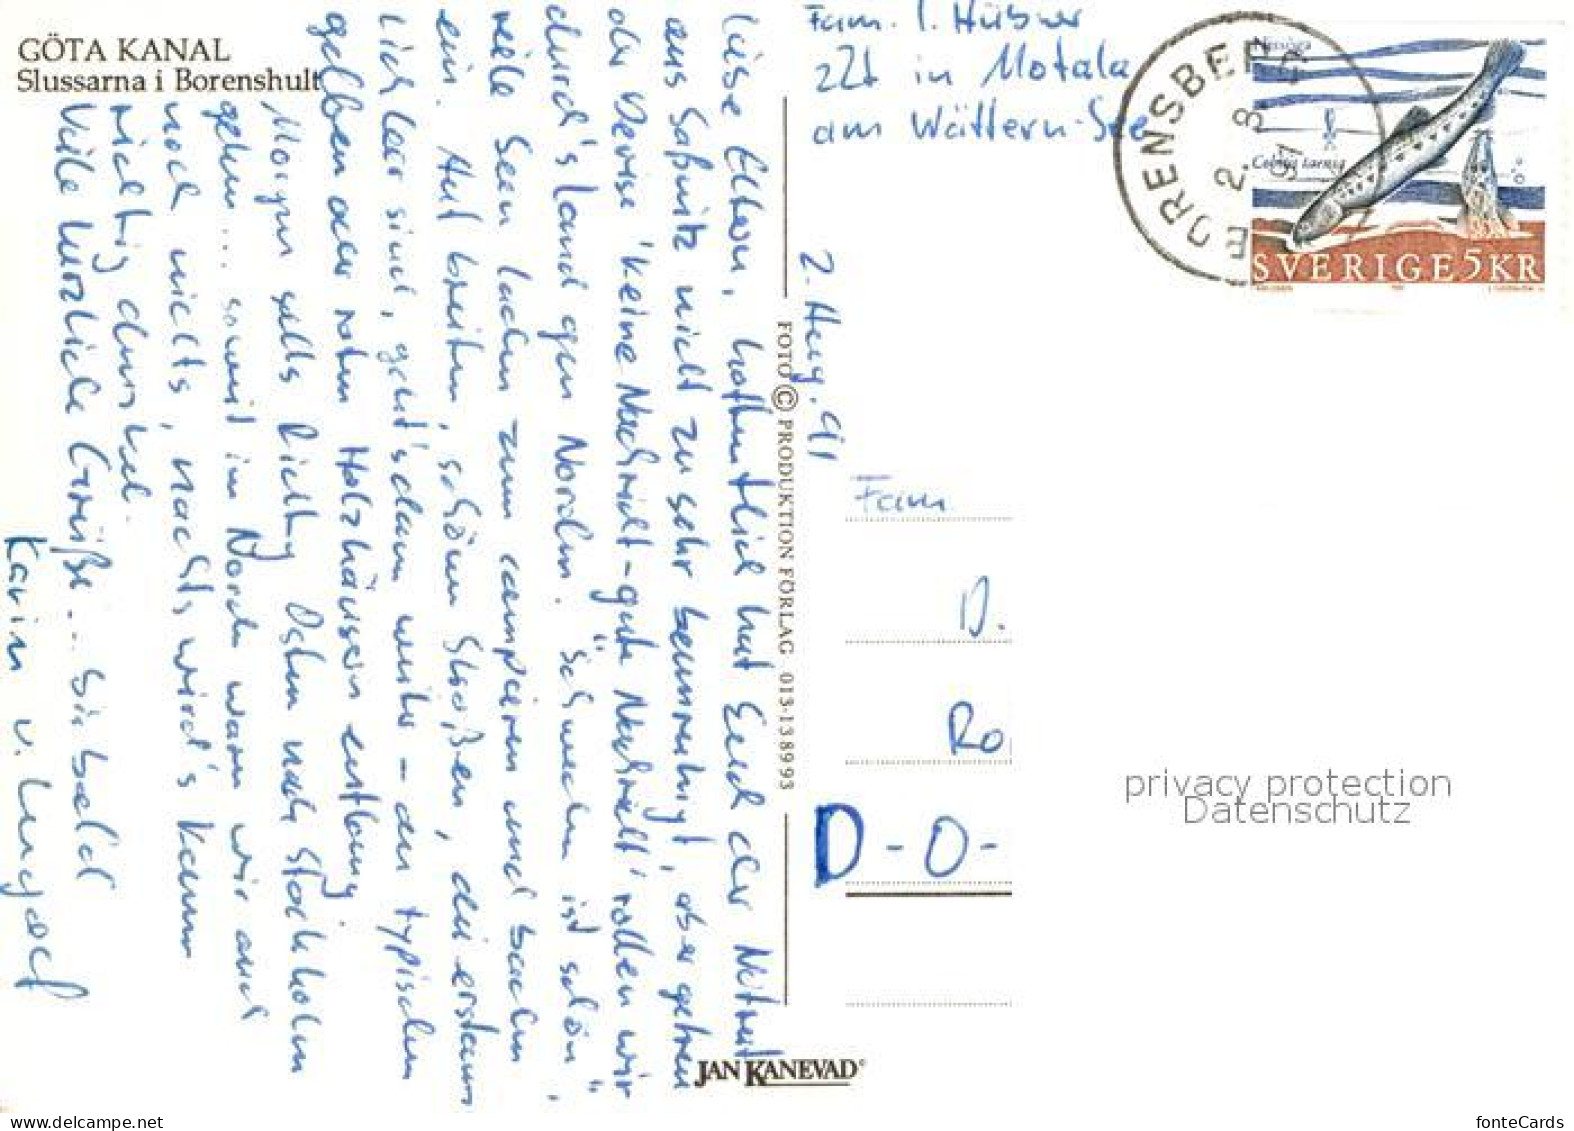 GÖTA KANAL
Slussarna i Borenshult
Fam. I. Hübner
zZt in Motala
am Wättern-See
BORENSBERG
2. 8. 91
Nissöga
Cobitis taenia
SVERIGE 5KR
2. Aug. 91
Liebe Eltern, hoffentlich hat Euch der Notruf
aus Saßnitz nicht zu sehr beunruhigt, aber getreu
der Devise 'keine Nachricht - gute Nachricht' rollen wir
durch's Land gen Norden. "Schweden ist schön",
viele Seen laden zum campieren und baden
ein. Auf breiten, schönen Straßen, die erstaun
lich leer sind, geht's dann weiter - an typischen
gelben oder roten Holzhäusern entlang.
Morgen soll's Richtg Osten nach Stockholm
gehen... soweit im Norden waren wir auch
noch nicht, nachts wird's kaum
richtig dunkel.
Viele herzliche Grüße... bis bald
Karin u.
FOTO © PRODUKTION FÖRLAG 013-138993
Fam
D.
Ro
D-O-
privacy protection
Datenschutz
JAN KANEVAD
www.delcampe.net
fonteCards